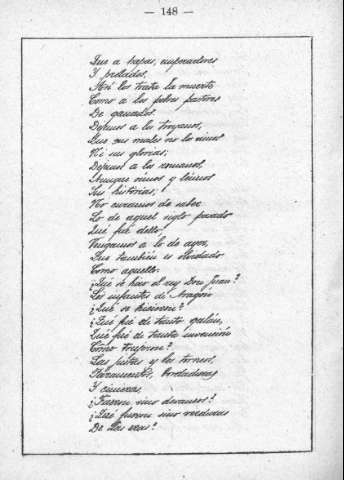 — 148 —
Que a papas, emperadores
Y prelados,
Así los trata la muerte
Como a los pobres pastores
De ganados.
Dejemos a los troyanos,
Que sus males no los vimos
Ni sus glorias;
Dejemos a los romanos,
Aunque oimos y leimos
Sus historias;
No curemos de saber
Lo de aquel siglo pasado
Qué fué dello;
Vengamos a lo de ayer,
Que también es olvidado
Como aquello.
¿Qué se hizo el rey Don Juan?
Los infantes de Aragón
¿Qué se hicieron?
¿Qué fué de tanto galán,
Qué fué de tanta invención
Como trujeron?
Las justas y los torneos,
Paramentos, bordaduras
Y cimeras,
¿Fueron sino devaneos?
¿Qué fueron sino verduras
De las eras?